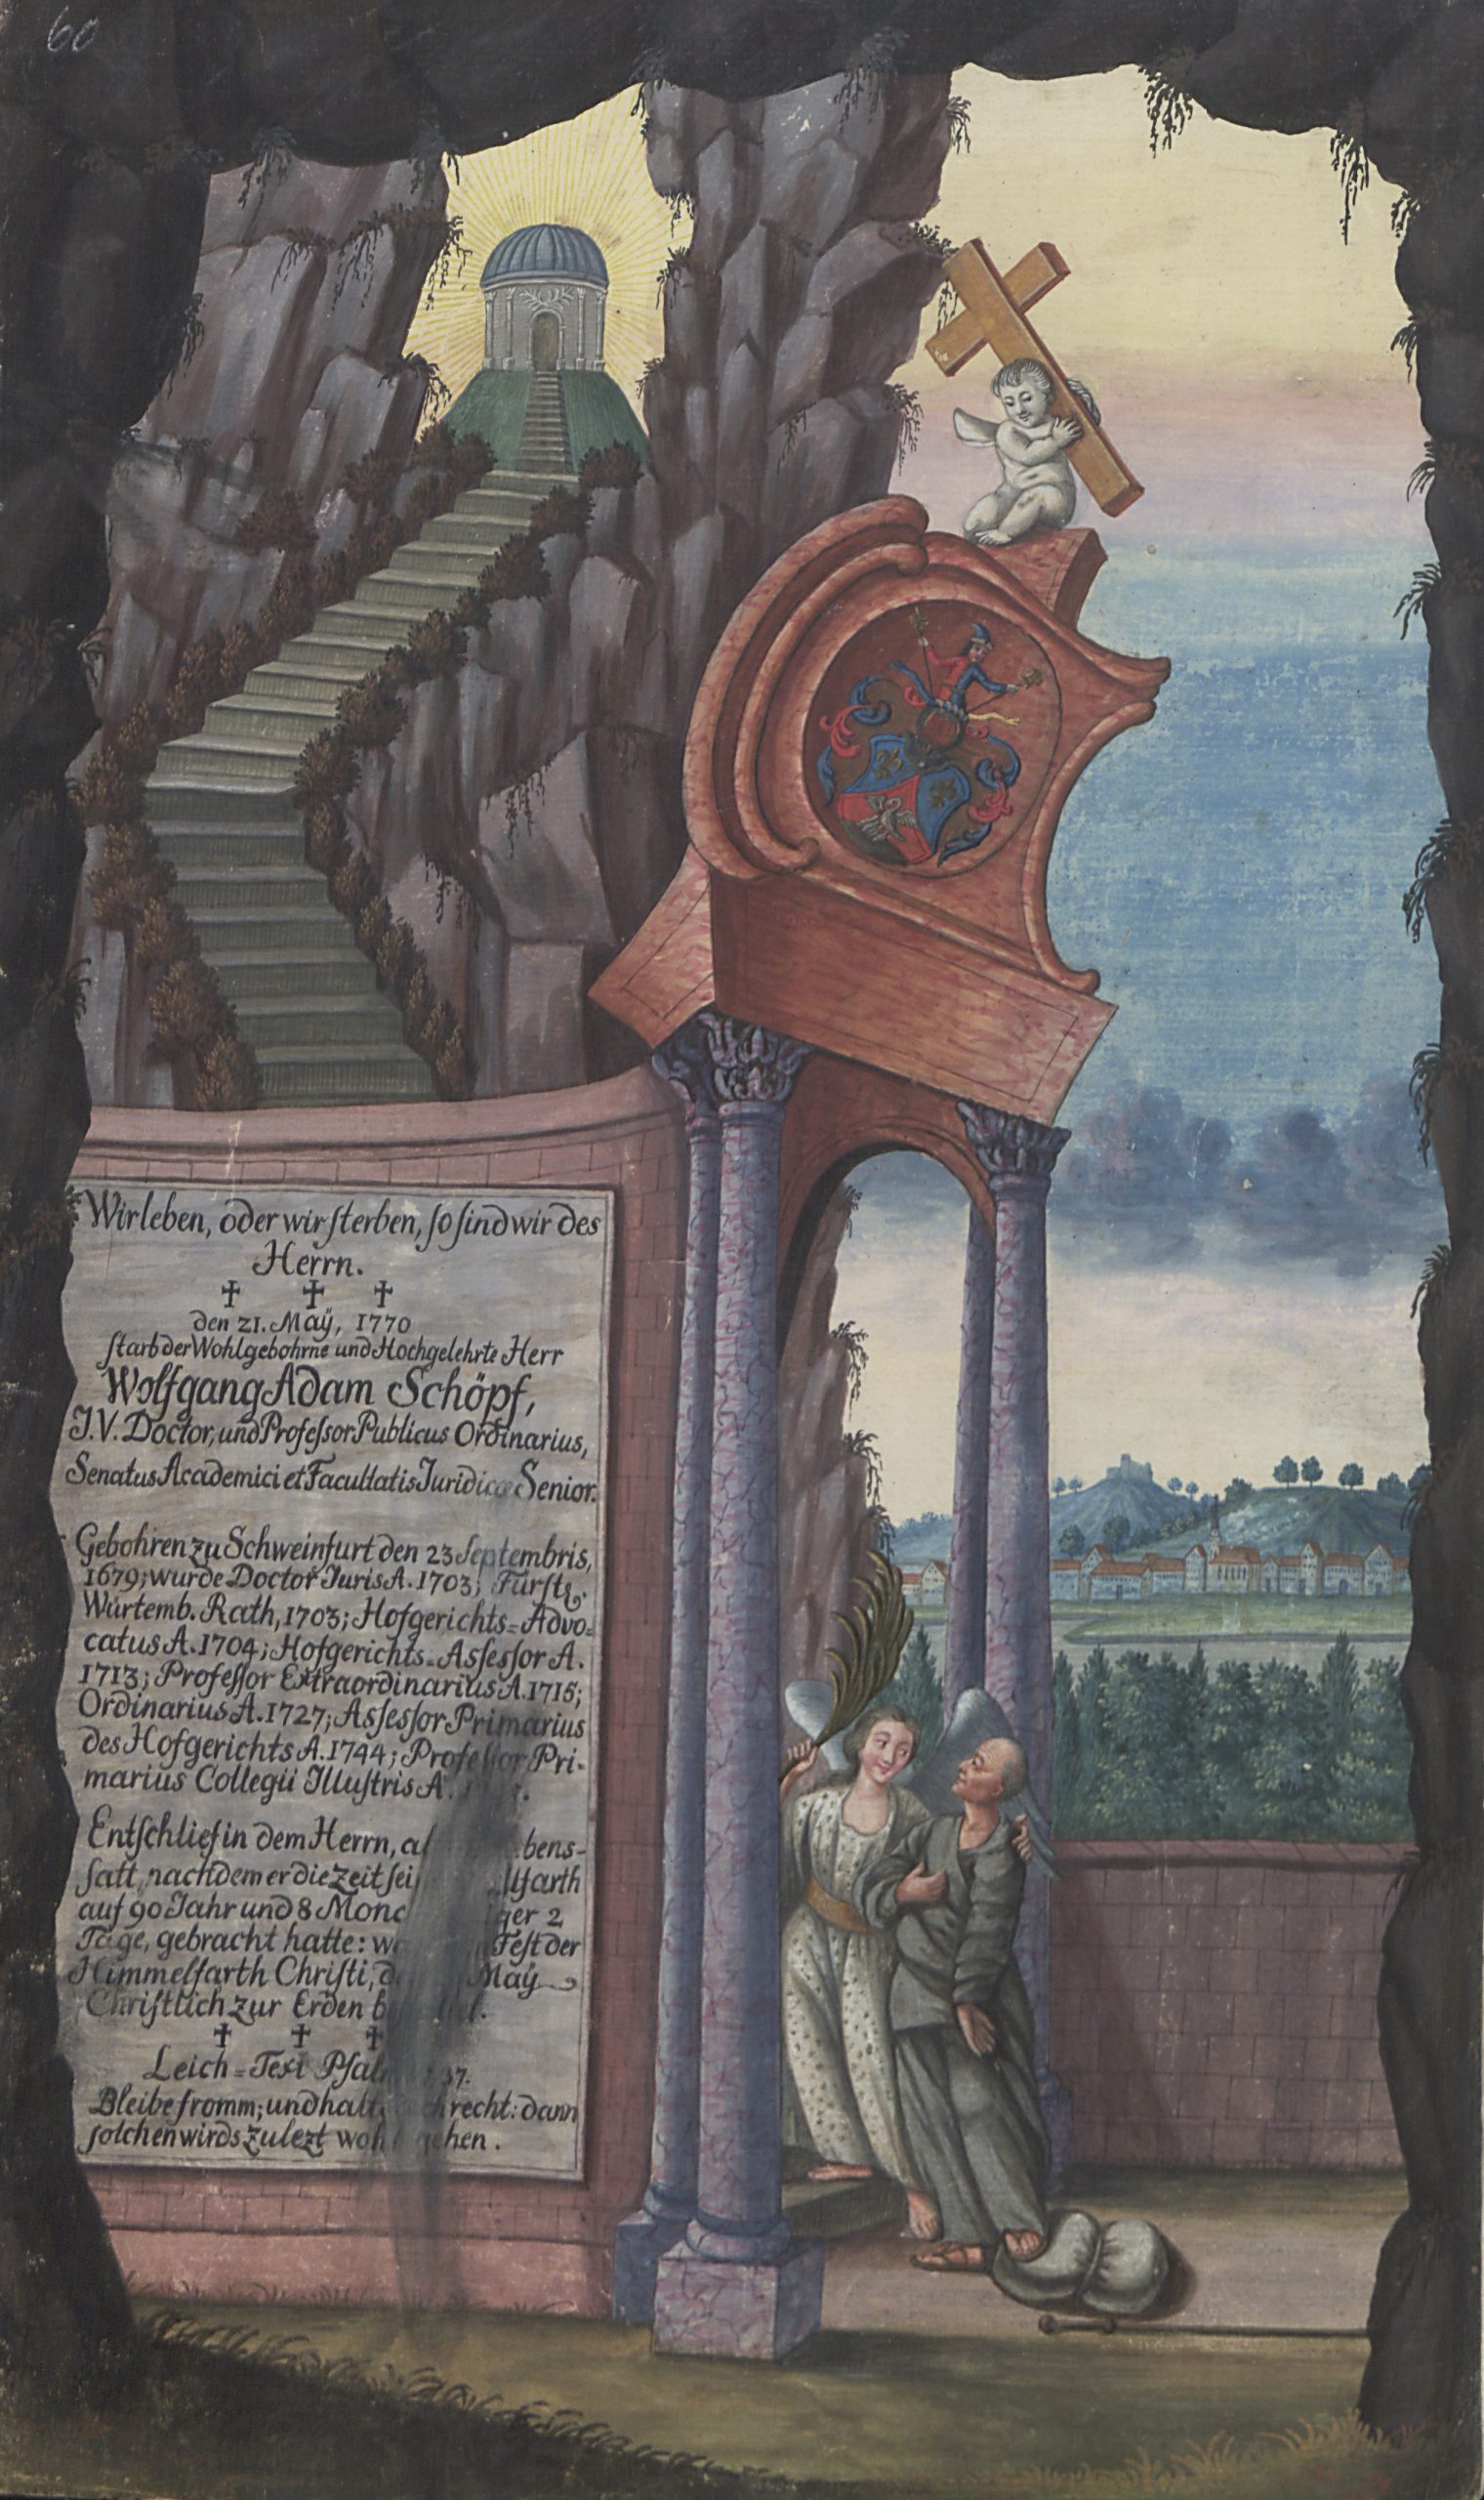 60
Wir leben, oder wir sterben, so sind wir des
Herrn.
den 21. Maÿ, 1770
starb der Wohlgebohrne und Hochgelehrte Herr
Wolfgang Adam Schöpf,
J.V. Doctor, und Professor Publicus Ordinarius,
Senatus Academici et Facultatis Juridicæ Senior.
Gebohren zu Schweinfurt den 23 Septembris,
1679; wurde Doctor Juris A. 1703; Fürstl.
Würtemb. Rath, 1703; Hofgerichts=Advo=
catus A. 1704; Hofgerichts=Assessor A.
1713; Professor Extraordinarius A. 1716;
Ordinarius A. 1727; Assessor Primarius
des Hofgerichts A. 1744; Professor Pri-
marius Collegii Illustris A.
Entschlief in dem Herrn, bens-
satt, nachdem er die Zeit
auf 90 Jahr und 8 2
Tage, gebracht hatte: Fest der
Himmelfarth Christi, Maÿ
Christlich zur Erden
Leich=Text 37.
Bleibe fromm; und recht: dann
solchen wirds zulezt